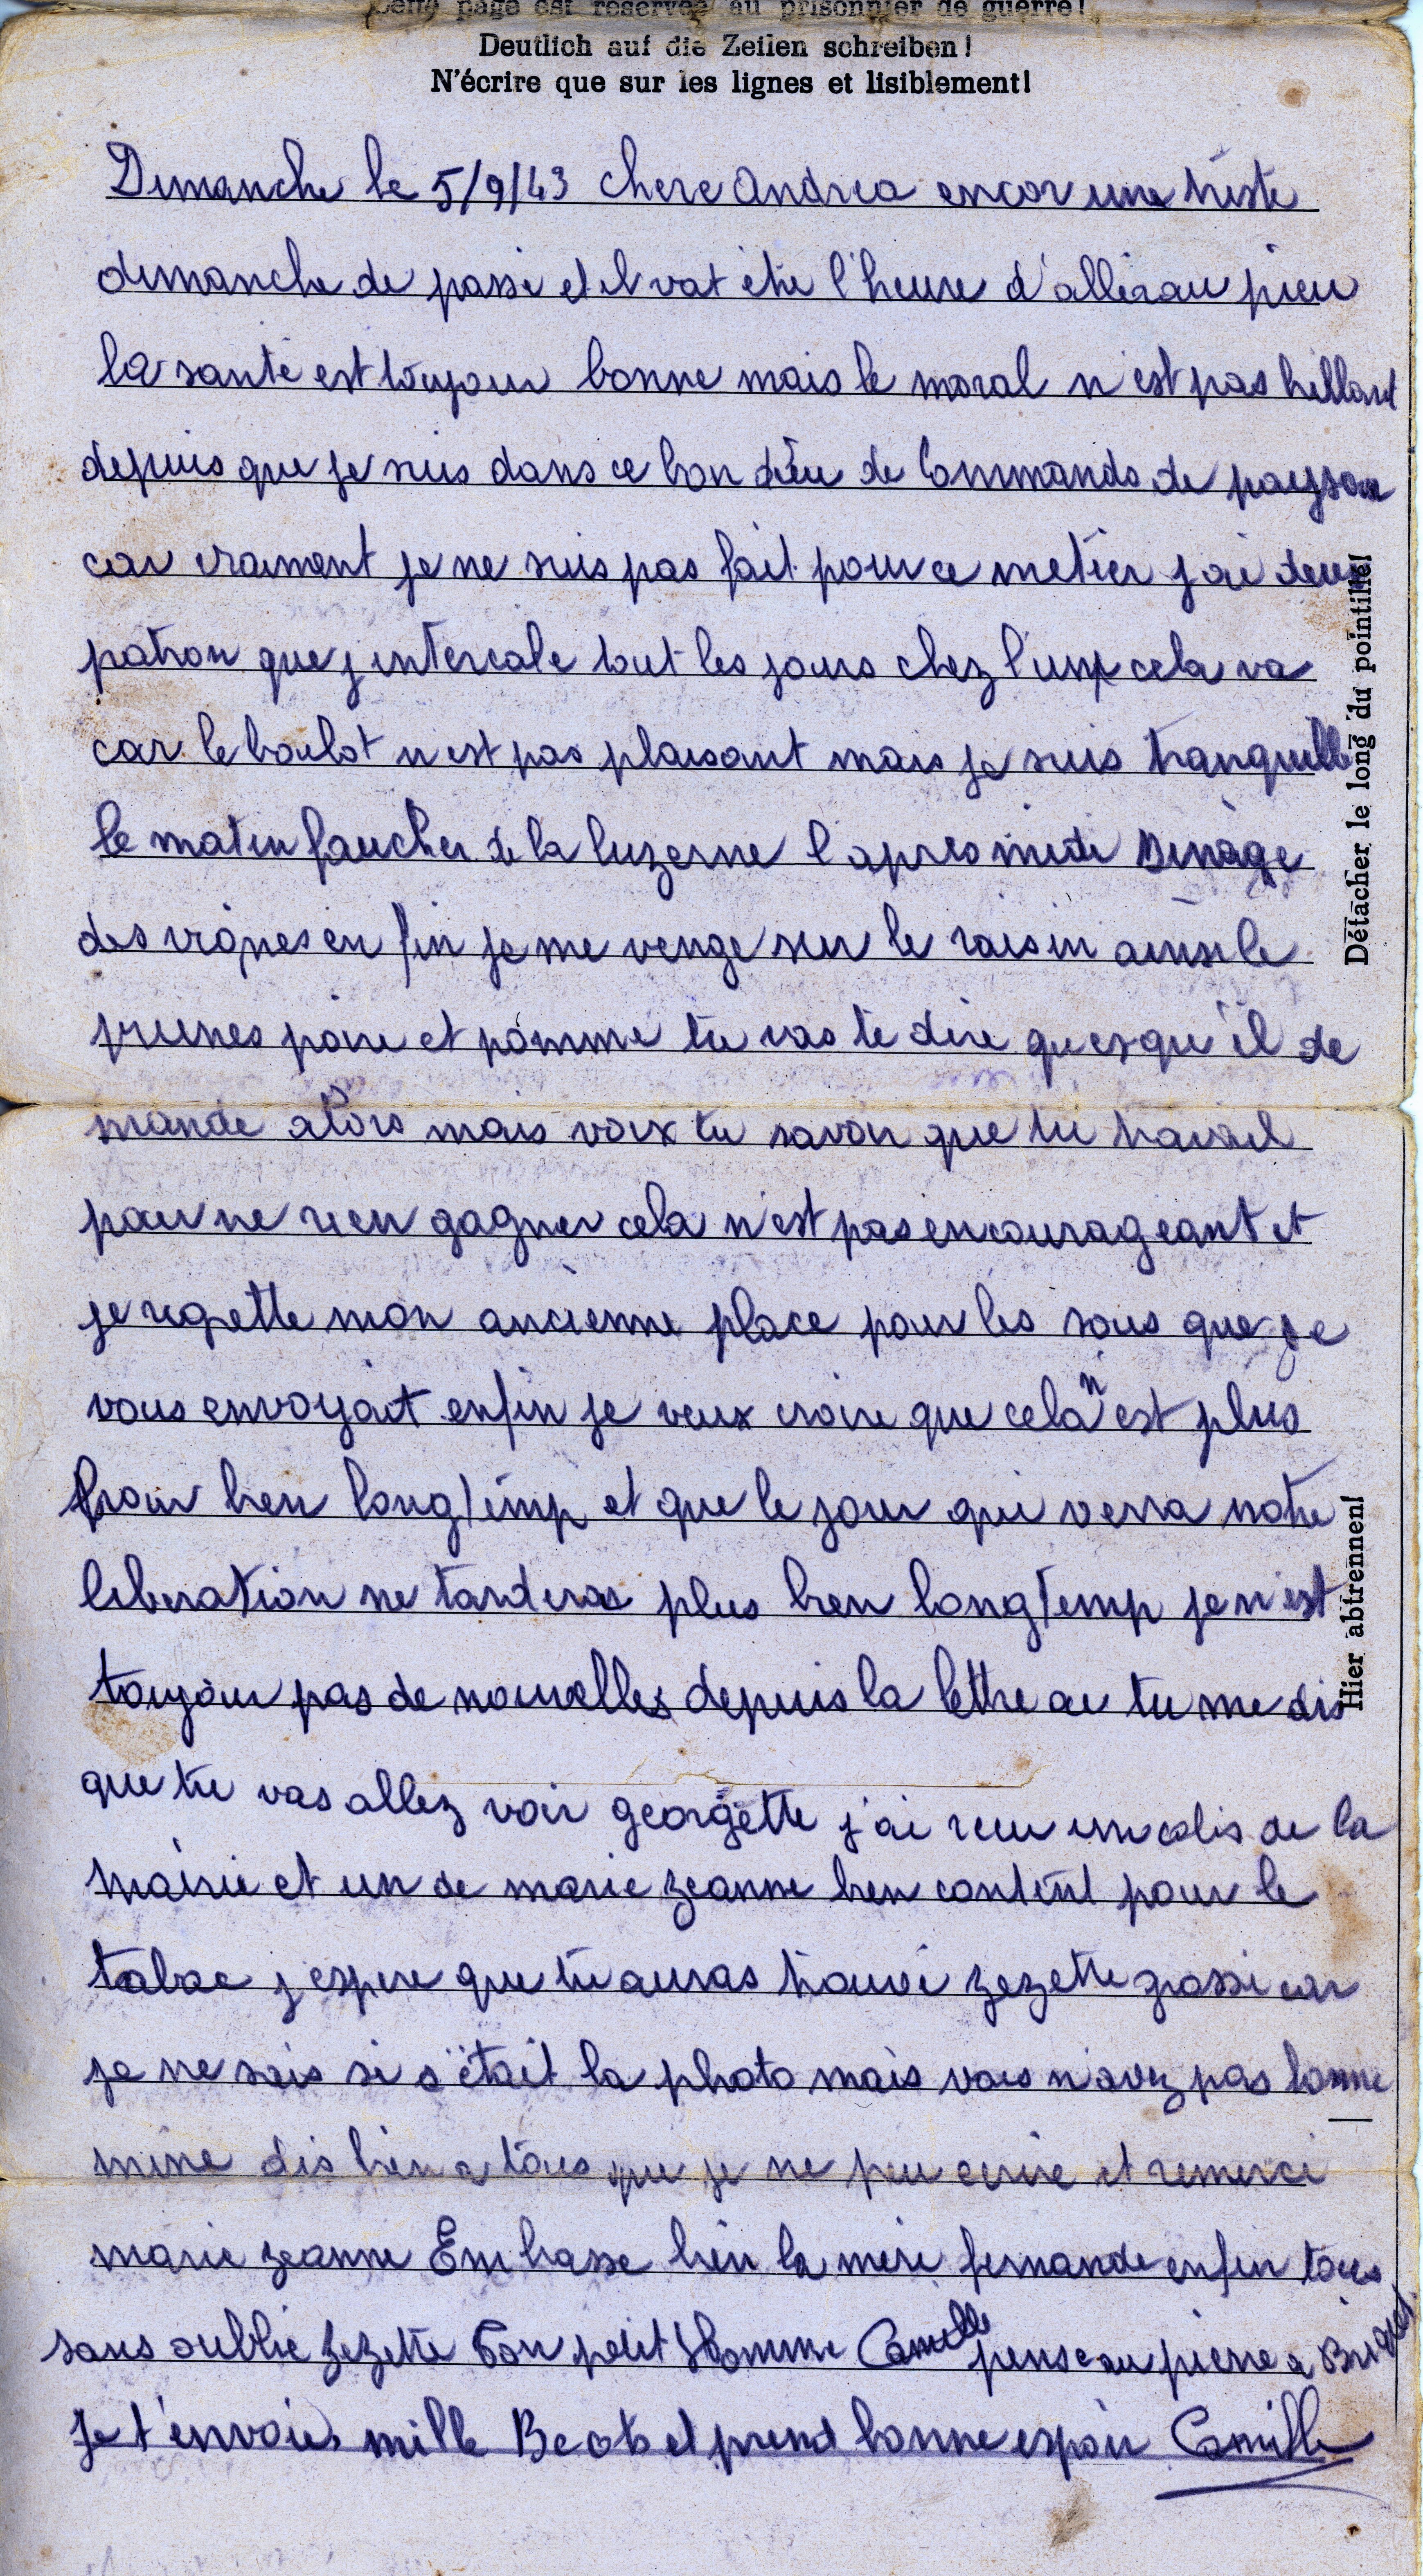 Cette page est réservée au prisonnier de guerre!
Deutlich auf die Zeilen schreiben!
N'écrire que sur les lignes et lisiblement!
Dimanche le 5/9/43 chere Andrea encor une triste
dimanche de passé et il vat etre l'heure d'aller au pieu
la santé est toujour bonne mais le moral n'est pas brillant
depuis que je suis dans ce bon dieu de Commando de payson
car vraiment je ne suis pas fait pour ce metier j ai deux
patron que j intercale tout les jours chez l'un cela va
car le boulot n est pas plaisant mais je suis tranquille
le matin faucher de la luzerne l apres midi Binage
des vignes en fin je me venge sur le raisin ainsi le
prunes poire et pomme tu vas te dire quesqu'il de
mande alors mais voix tu savoir que tu travail
pour ne rien gagner cela n'est pas encourageant et
je regrette mon ancienne place pour les sous que je
vous envoyait enfin je veux croire que cela n'est plus
pour bien longtemp et que le jour qui verra notre
liberation ne tarderas plus bien longtemp je n'est
toujour pas de nouvelles depuis la lettre ou tu me dis
que tu vas allez voir georgette j'ai recu un colis de la
mairie et un de marie zeanne bien content pour le
tabac j espere que tu auras trouvé zezette grossi car
je ne sais si s'était la photo mais vous n'avez pas bonne
mine dis bien a tous que je ne peu ecrire et remerci
marie zeanne Embrasse bien la mere fernande enfin tous
sans oublié zezette Ton petit Homme Camille pense au pierre a Briquet
Je t'envoie mille Becots et prend bonne espoir Camille
Détacher le long du pointillé!
Hier abtrennen!